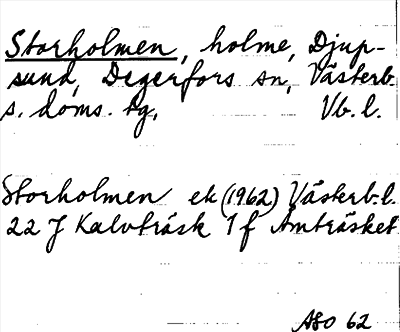 Storholmen, holme, Djup-
sund, Degerfors sn, Västerb.
s. doms. tg, Vb. l.
Storholmen ek (1962) Västerb.l.
22 J Kalvträsk 1 f Åmträsket
ASO 62